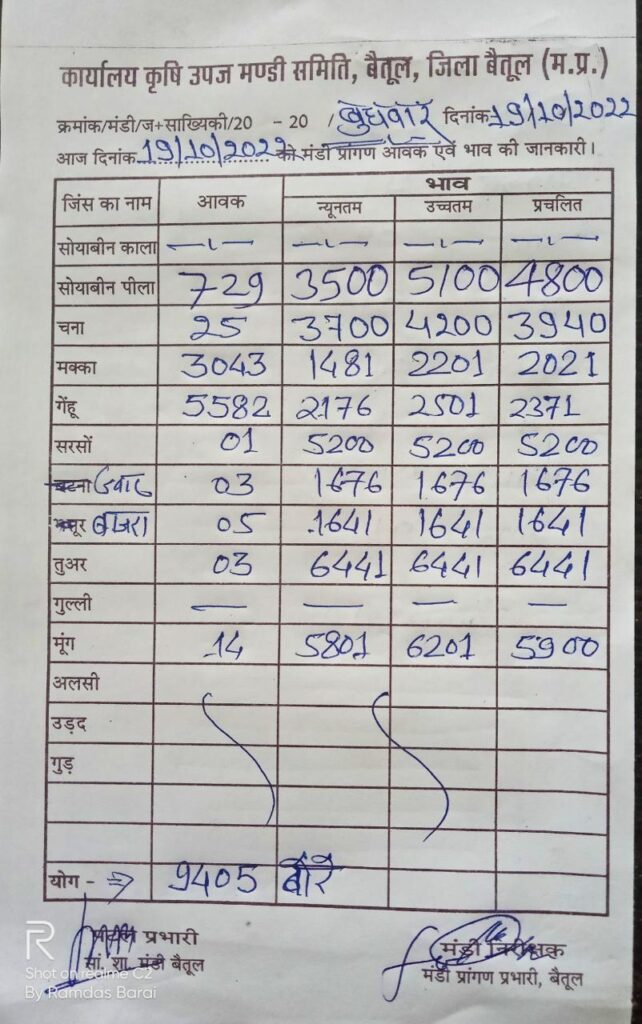 कार्यालय कृषि उपज मण्डी समिति, बैतूल, जिला बैतूल (म.प्र.)
क्रमांक/मंडी/ज+साख्यिकी/20 - 20 / बुधवार दिनांक 19/10/2022
आज दिनांक 19/10/2022 को मंडी प्रांगण आवक एवं भाव की जानकारी।
जिंस का नाम आवक भाव
न्यूनतम उच्चतम प्रचलित
सोयाबीन काला —ı— —ı— —ı— —ı—
सोयाबीन पीला 729 3500 5100 4800
चना 25 3700 4200 3940
मक्का 3043 1481 2201 2021
गेंहू 5582 2176 2501 2371
सरसों 01 5200 5200 5200
ज्वार 03 1676 1676 1676
बाजरा 05 1641 1641 1641
तुअर 03 6441 6441 6441
गुल्ली — — — —
मूंग 14 5801 6201 5900
अलसी
उड़द
गुड़
योग - ⇒ 9405 बोरे
प्रभारी
सां. शा. मंडी बैतूल
मंडी निरीक्षक
मंडी प्रांगण प्रभारी, बैतूल
R
Shot on realme C2
By Ramdas Barai